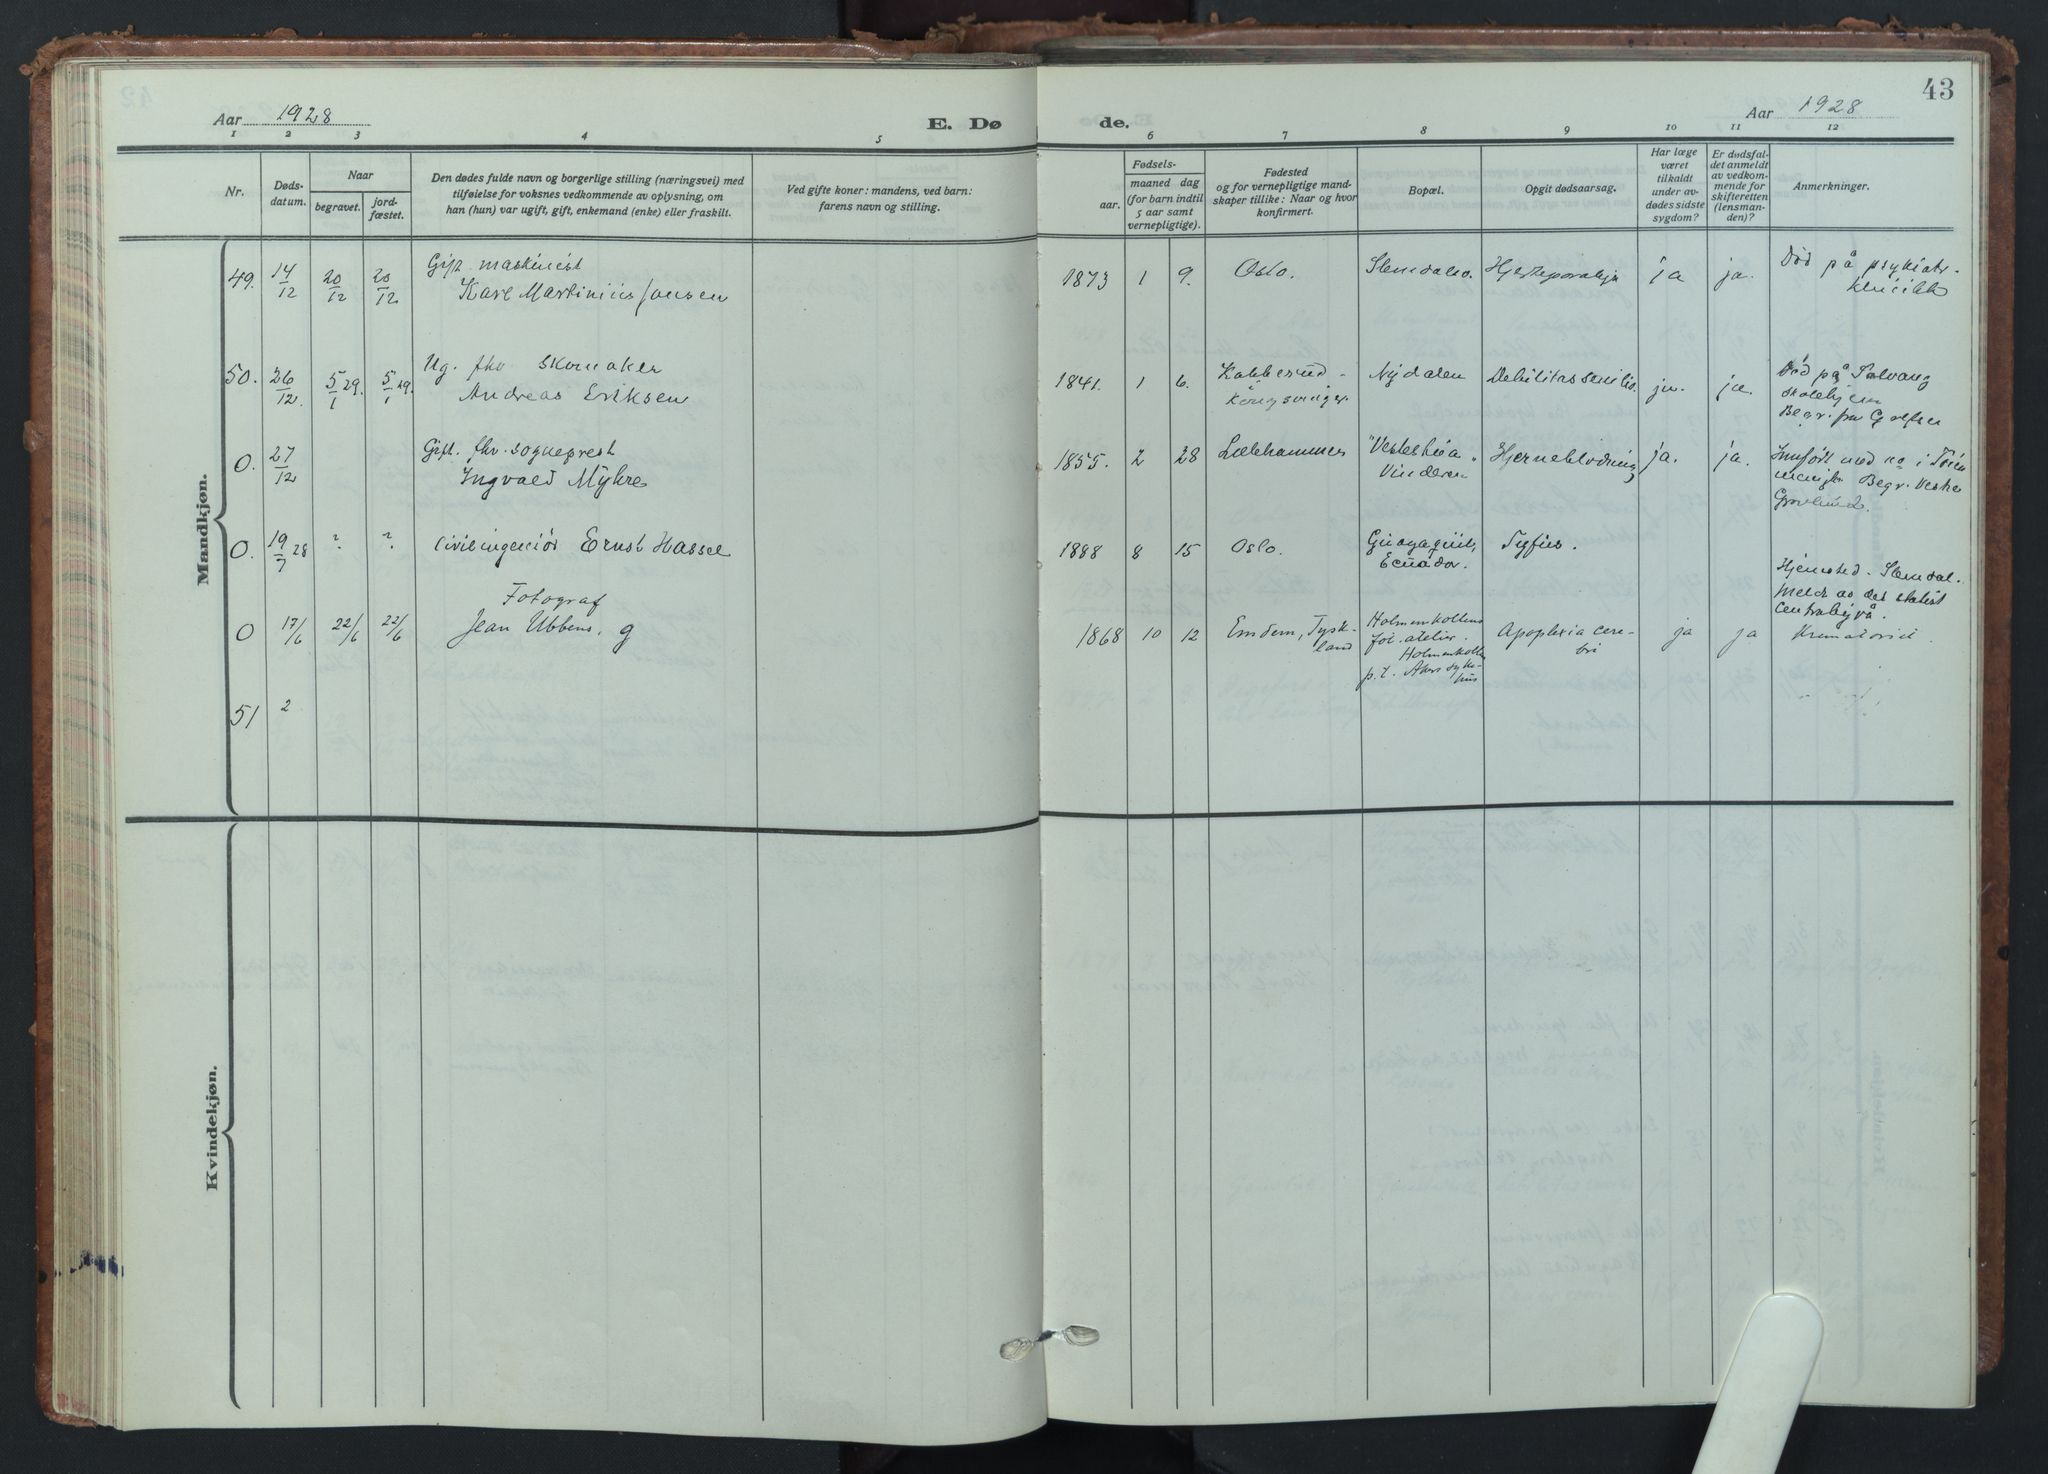 43
Aar 1928
E. Døde.
Aar 1928
1 2 3 4 5 6 7 8 9 10 11 12
Nr.
Døds-
datum.
Naar
begravet.
jord-
fæstet.
Den dødes fulde navn og borgerlige stilling (næringsvei) med
tilføielse for voksnes vedkommende av oplysning, om
han (hun) var ugift, gift, enkemand (enke) eller fraskilt.
Ved gifte koner: mandens, ved barn:
farens navn og stilling.
Fødsels-
aar.
maaned
dag
(for barn indtil
5 aar samt
vernepligtige).
Fødested
og for vernepligtige mand-
skaper tillike: Naar og hvor
konfirmert.
Bopæl.
Opgit dødsaarsag.
Har læge
været
tilkaldt
under av-
dødes sidste
sygdom?
Er dødsfal-
det anmeldt
av vedkom-
mende for
skifteretten
(lensman-
den)?
Anmerkninger.
Mandkjøn.
49. 14/12 20/12 20/12
Gift. maskinist
Karl Martinius Jansen
1873 1 9. Oslo. Slemdalsv. ja ja.
Død på psykiatr.
klinikk
50. 26/12. 5/1 29. 5/1 29.
Ug. fhv skomaker
Andreas Eriksen
1841. 1 6.
Kongsvinger.
Nydalen
Debilitas senilis.
ja. ja.
Død på Solvang
Begr. fra Grefsen
0. 27/12
Gift. fhv. sogneprest
Ingvald Myhre
1855. 2 28 Lillehammer
Vinderen
Hjerneblødning
ja. ja.
Innført med no i
menigh. Begr. Vestre
Gravlund.
0. 19/7 28 ? ?
Civilingeniør Ernst Hassel
1888 8 15 Oslo.
Guayaquil,
Ecuador.
Tyfus.
Hjemsted - Slemdal.
Meldt av det statist
centralbyrå
0 17/6 22/6 22/6
Fotograf
Jean Ubbens, g
1868 10 12
Emdem, Tysk-
land
Holmenkollens
fot. atelier.
Holmenkollen
p.t. Akers syke-
hus
Apoplexia cere-
bri
ja ja
Krematoriet.
51 2
Kvindekjøn.